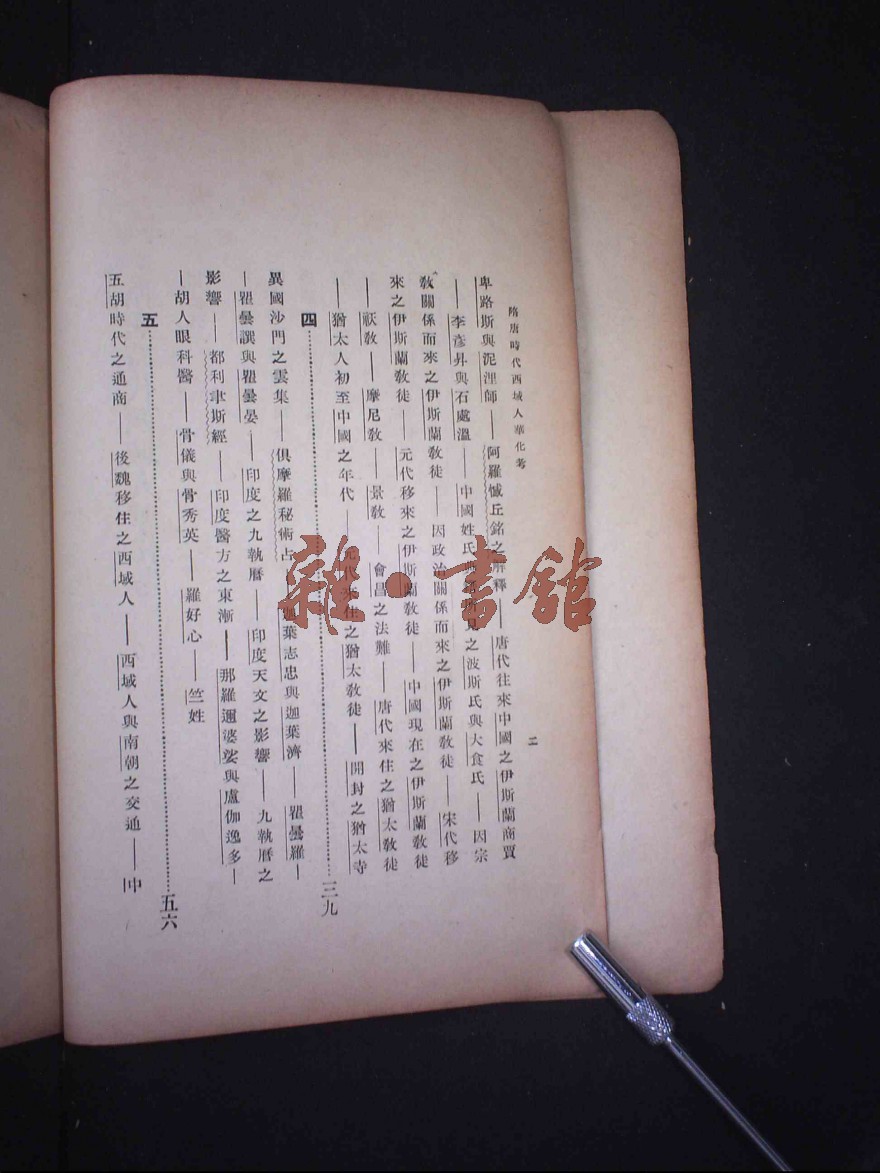 隋唐時代西域人華化考
二
卑路斯與泥浬師——阿羅憾丘銘之解釋——唐代往來中國之伊斯蘭商賈
——李彥昇與石處溫——中國姓氏所見之波斯氏與大食氏——因宗
敎關係而來之伊斯蘭敎徒——因政治關係而來之伊斯蘭敎徒——宋代移
來之伊斯蘭敎徒——元代移來之伊斯蘭敎徒——中國現在之伊斯蘭敎徒
——祆敎——摩尼敎——景敎——會昌之法難——唐代來住之猶太敎徒
——猶太人初至中國之年代——元代來住之猶太敎徒——開封之猶太寺
四……三九
異國沙門之雲集——俱摩羅秘術占——迦葉志忠與迦葉濟——瞿曇羅—
—瞿曇譔與瞿曇晏——印度之九執曆——印度天文之影響——九執曆之
影響——都利聿斯經——印度醫方之東漸——那羅邇婆娑與盧伽逸多—
—胡人眼科醫——骨儀與骨秀英——羅好心——竺姓
五……五六
五胡時代之通商——後魏移住之西域人——西域人與南朝之交通——中
雜·書館